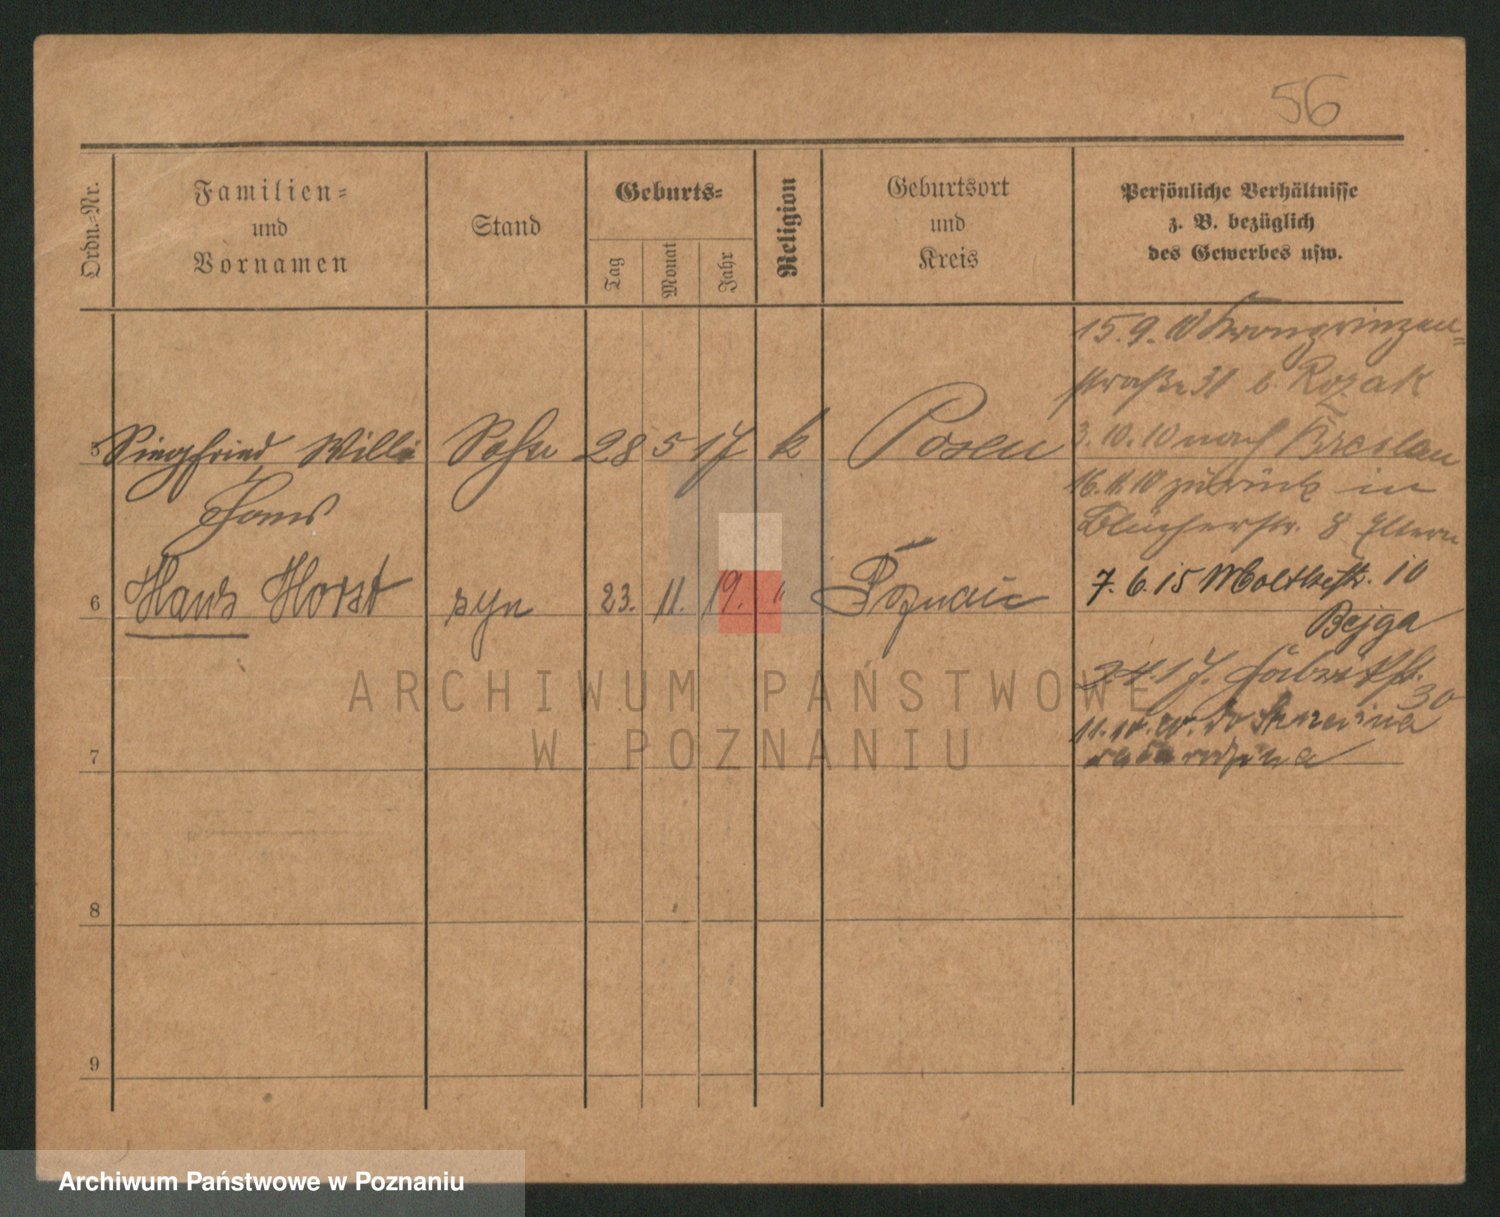 56
Ordn.-Nr.
Familien-
und
Vornamen
Stand
Geburts-
Tag
Monat
Jahr
Religion
Geburtsort
und
Kreis
Persönliche Verhältnisse
z. B. bezüglich
des Gewerbes usw.
15.9.10 Kronprinzen-
straße 31 b. Rozak
5 Siegfried Willi Sohn 28 5 17 k Posen
3.10.10 nach Breslau
Hans
16.11.10 zurück in
Blücherstr. 8 Eltern
7.6.15 Moltkestr. 10
6 Hans Horst syn 23. 11. 19. " Poznań
Bejga
17.
30
ARCHIWUM PAŃSTWOWE
W POZNANIU
11.10. do
7
8
9
Archiwum Państwowe w Poznaniu